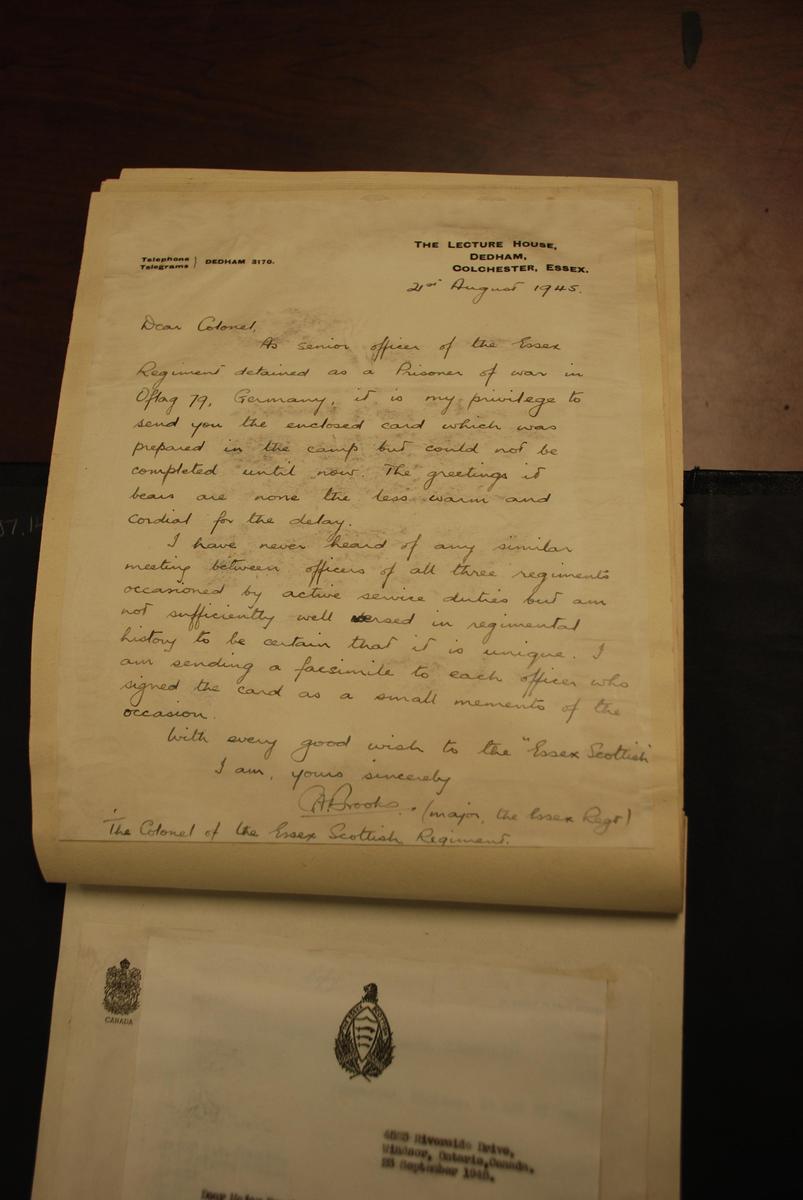 THE LECTURE HOUSE,
DEDHAM,
COLCHESTER, ESSEX.
Telephone
Telegrams } DEDHAM 3170.
21st August 1945.
Dear Colonel,
As senior officer of the Essex
Regiment detained as a Prisoner of war in
Oflag 79, Germany, it is my privilege to
send you the enclosed card which was
prepared in the camp but could not be
completed until now. The greetings it
bears are none the less warm and
cordial for the delay.
I have never heard of any similar
meeting between officers of all three regiments
occasioned by active service duties but am
not sufficiently well versed in regimental
history to be certain that it is unique. I
am sending a facsimile to each officer who
signed the card as a small memento of the
occasion.
With every good wish to the "Essex Scottish"
I am, yours sincerely
Brooks. (major, the Essex Regt)
The Colonel of the Essex Scottish Regiment.
CANADA
Riverside Drive,
Windsor, Ontario, Canada.
September 1945.
Dear